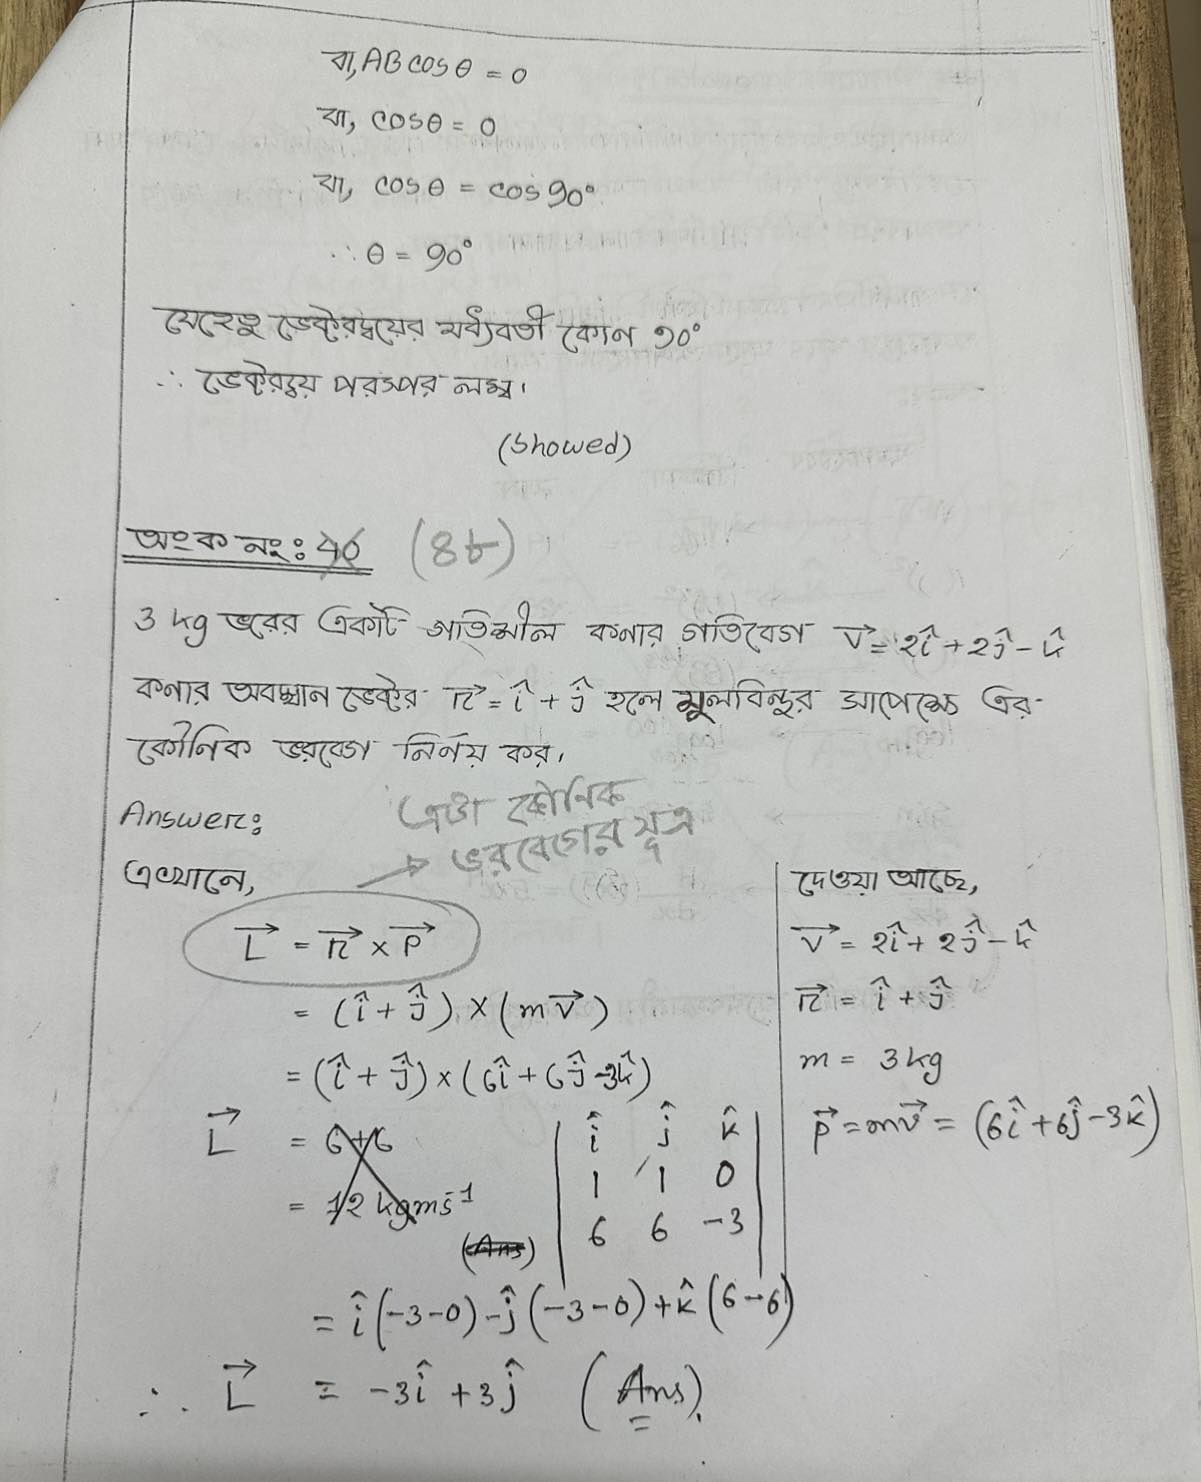 বা, AB cosθ = 0
বা, cosθ = 0
বা, cosθ = cos 90°
∴ θ = 90°
যেহেতু ভেক্টরদ্বয়ের মধ্যবর্তী কোন 90°
∴ ভেক্টরদ্বয় পরস্পর লম্ব।
(Showed)
অংক নং: (৪৮)
3 kg ভরের একটি গতিশীল কনার গতিবেগ v⃗ = 2î + 2ĵ - k̂
কনার অবস্থান ভেক্টর r⃗ = î + ĵ হলে মূলবিন্দুর সাপেক্ষে এর
কৌনিক ভরবেগ নির্ণয় কর।
Answer:
এটা কৌনিক
→ ভরবেগের সূত্র
এখানে,
L⃗ = r⃗ × P⃗
= (î + ĵ) × (mv⃗)
= (î + ĵ) × (6î + 6ĵ - 3k̂)
L⃗ = 6+6
= 12 kgms⁻¹
(Ans)
| î ĵ k̂ |
| 1 1 0 |
| 6 6 -3 |
= î(-3-0) - ĵ(-3-0) + k̂(6-6)
∴ L⃗ = -3î + 3ĵ (Ans).
দেওয়া আছে,
v⃗ = 2î + 2ĵ - k̂
r⃗ = î + ĵ
m = 3 kg
p⃗ = mv⃗ = (6î + 6ĵ - 3k̂)